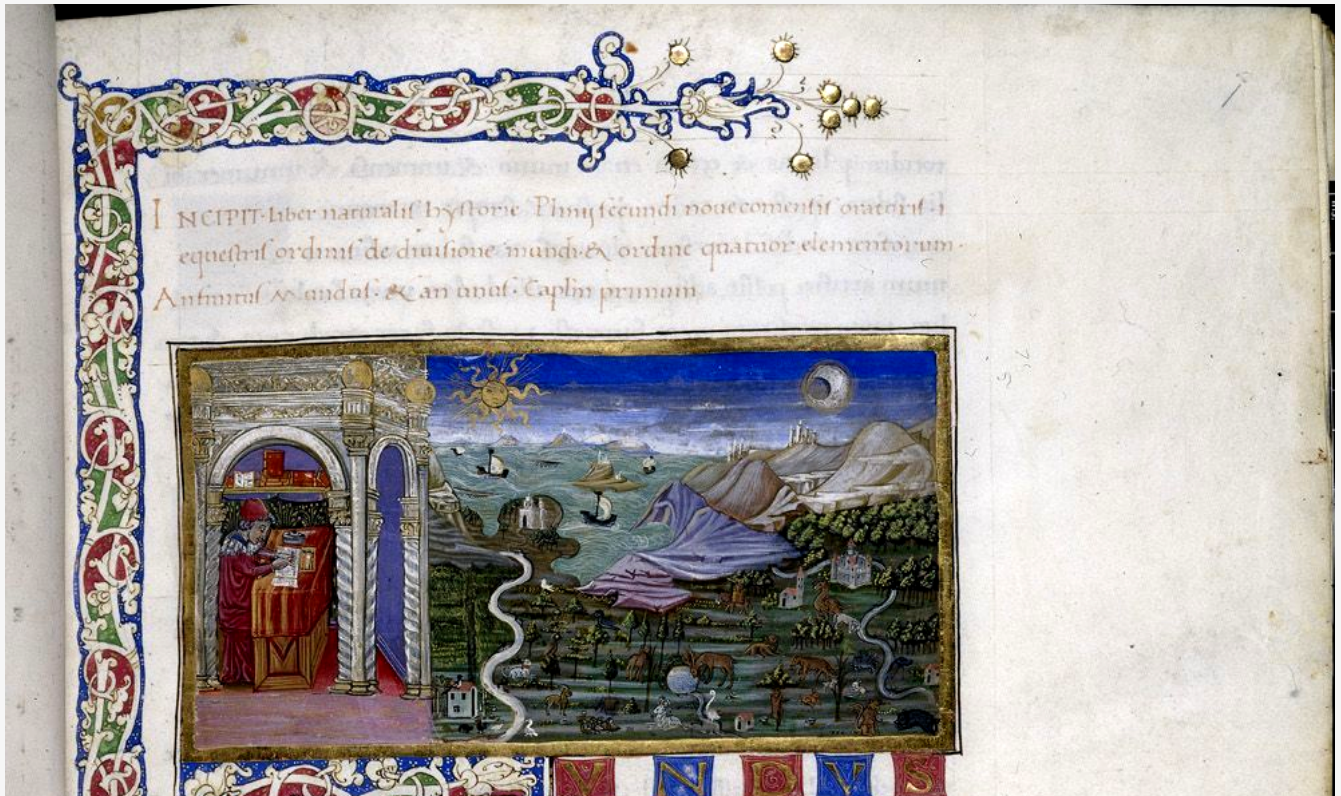 INCIPIT· liber naturalis hystorie Plinij secundi novecomensis oratoris· i
equestris ordinis de divisione mundi· & ordine quatuor elementorum·
An finitus Mundus· & an unus· Caplm primum·
VNDVS